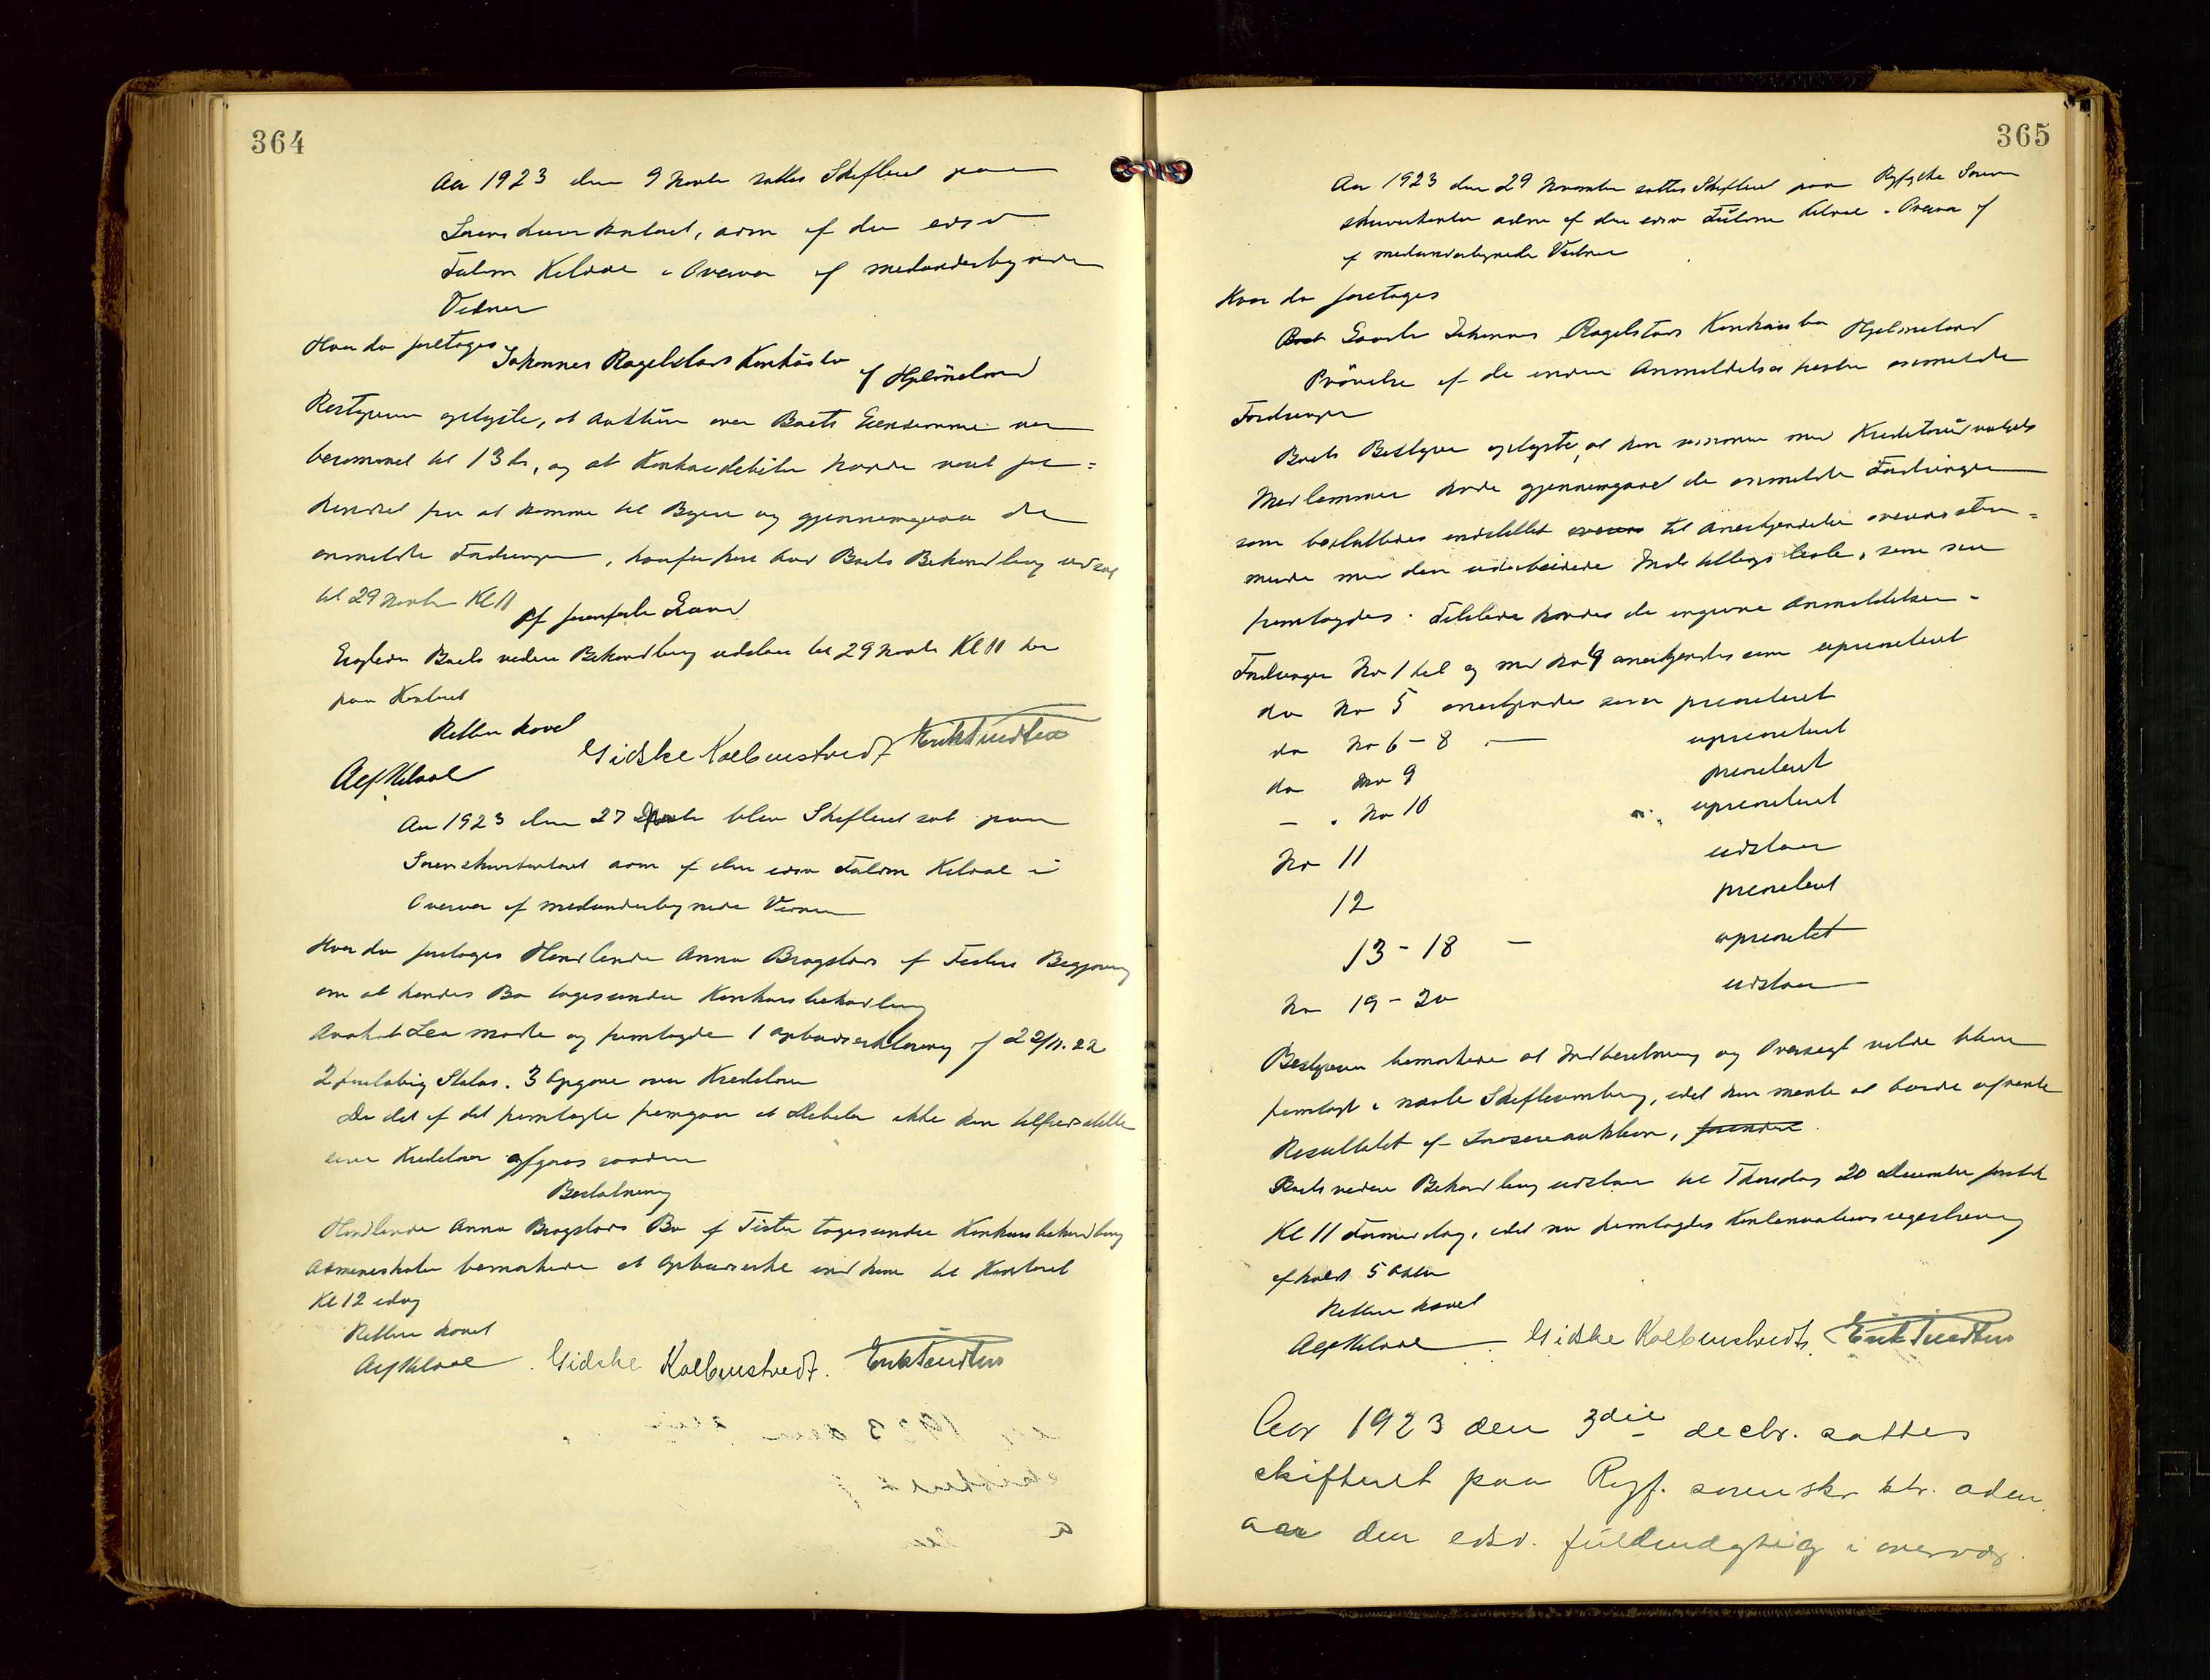 364
Aar 1923 den 9 Novbr sattes Skifteret paa
Sorenskriverkontoret, adm af den edsv
Fuldm Kiland i Overvær af medundertegnede
Vidner
Hvor da foretoges Johannes Ragelstads Konkursbo af Hjelmeland
Bestyreren oplyste, at Auktion over Boets Eiendomme var
berammet til 13 ds, og at Konkursdebitor havde været for=
hindret fra at komme til Byen og gjennemgaa de
anmeldte Fordringer, hvorfor han bad Boets Behandling udsat
til 29 Novbr Kl 11
Af forenførte Grund
Boets videre Behandling udstaar til 29 Novbr Kl 11 her
paa Kontoret
Retten hævet
Gidske Kolbenstvedt
Aar 1923 den 27 Novbr blev Skifteret sat paa
Sorenskriverkontoret adm af den edsv Fuldm Kiland i
Overvær af medundertegnede Vidner
Hvor da foretoges Handlende Anna Bragstads af Begjæring
om at hendes Bo toges under Konkursbehandling
mødte og fremlagde 1 Opbudserklæring af 22/11.22
2 foreløbig Status. 3 Opgave over Kreditorer
Da det af det fremlagte fremgaar at Debitor ikke kan tilfredsstille
sine Kreditorer afgaves saadan
Beslutning
Handlende Anna Bragstads Bo af tages under Konkursbehandling
bemærkede at indkom til Kontoret
Kl 12 idag
Retten hævet
Gidske Kolbenstvedt.
365
Aar 1923 den 29 November sattes Skifteret paa Ryfylke Soren
skriverkontor adm af den edsv Fuldm Kiland i Overvær af
af medundertegnede Vidner
Hvor da foretoges
Johannes Ragelstads Konkursbo Hjelmeland
Prøvelse af de inden Anmeldelsesfristen anmeldte
Fordringer
Boets Bestyrer oplyste, at han sammen med Kreditorudvalgets
Medlemmer havde gjennemgaaet de anmeldte Fordringer
som besluttedes indstillet til Anerkjendelse overensstem=
mende med den udarbeidede Indstillingsliste, som
fremlagdes. Tilstede havdes de indgivne Anmeldelser.
Fordringer No 1 til og med No 4 anerkjendes som uprioriteret
do No 5 anerkjendes som prioriteret
do No 6 - 8 — uprioriteret
do No 9 prioriteret
— " No 10 uprioriteret
No 11 udstaar
12 prioriteret
13 - 18 — uprioritet
No 19 - 20 udstaar
Bestyreren bemærkede at Indberetning og Oversigt vilde blive
fremlagt i næste Skiftesamling, idet han mente at burde afvente
Resultatet af Løsøreauktion,
Boets videre Behandling udstaar til Thorsdag 20 December førstk
Kl 11 Formiddag, idet nu fremlagdes
afholdt 5
Retten hævet
Gidske Kolbenstvedt.
Aar 1923 den 3die decbr. sattes
skifteret paa Ryf. sorenskr ktr. adm.
av den edsv. fuldmægtig i overvær.